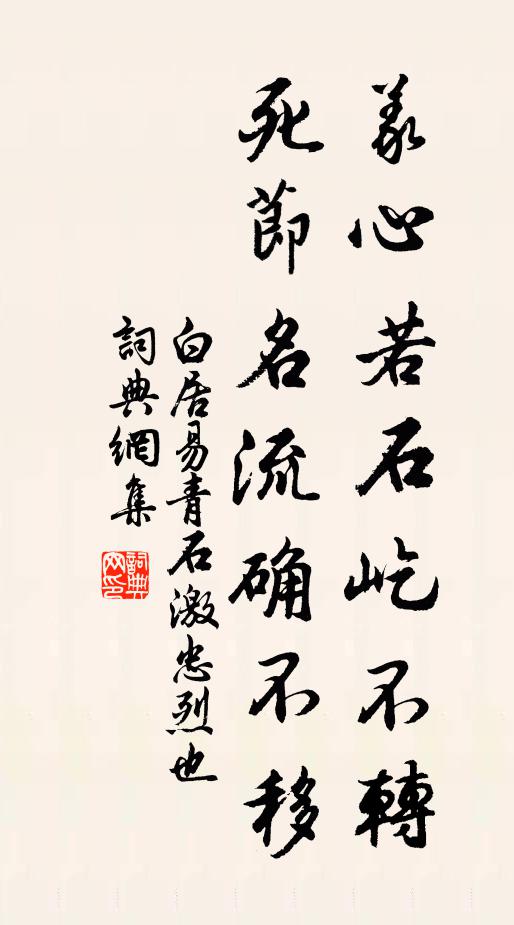 義心若石屹不轉
死節名流确不移
白居易青石激忠烈也
詞典網集
詞典網印